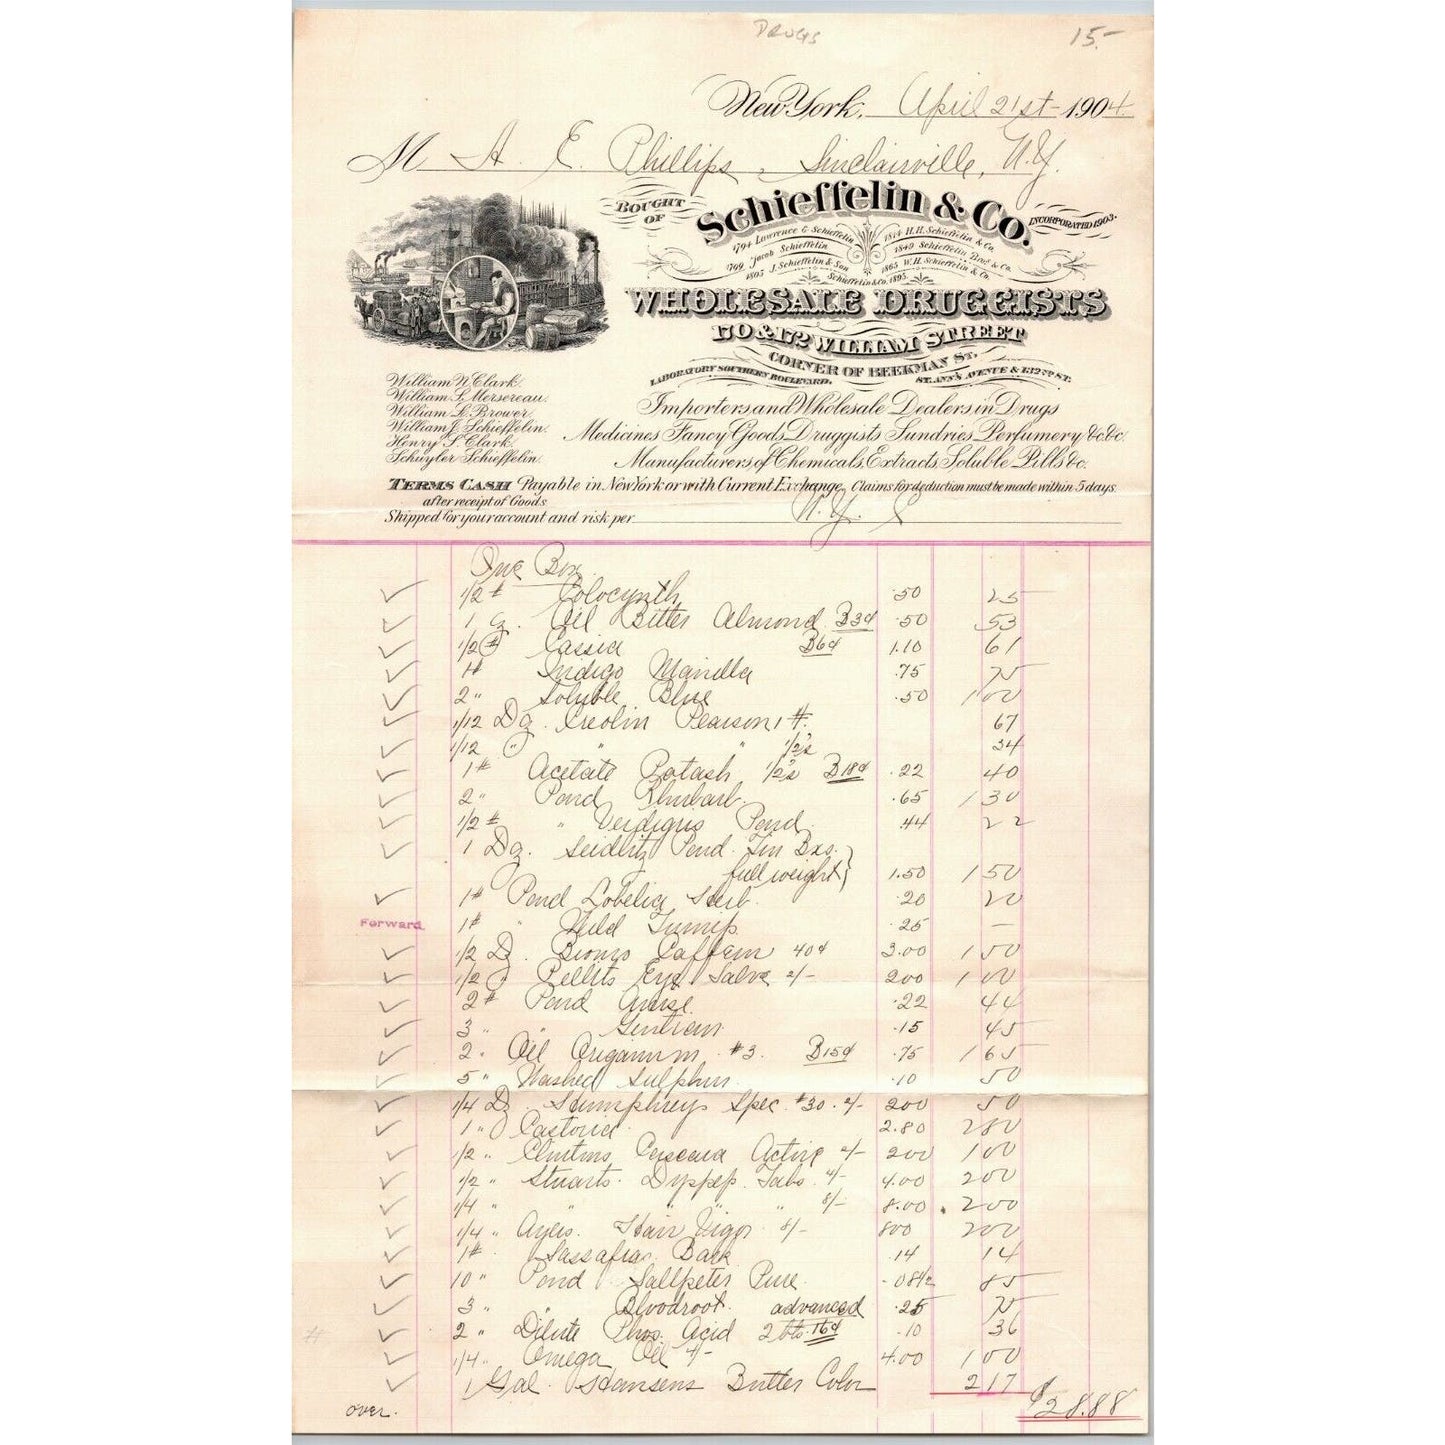 DRUGS 15.-
New York, April 21st- 1904
M A. E. Phillips, Sinclairville, N.Y.
BOUGHT OF Schieffelin & Co. INCORPORATED 1903.
1794 Lawrence & Schieffelin 1814 H.H. Schieffelin & Co.
1799 Jacob Schieffelin 1849 Schieffelin Bros & Co.
1805 J. Schieffelin & Son 1865 W.H. Schieffelin & Co.
Schieffelin & Co. 1895.
WHOLESALE DRUGGISTS
170 & 172 WILLIAM STREET
CORNER OF BEEKMAN ST.
LABORATORY SOUTHERN BOULEVARD, ST. ANN'S AVENUE & 132ND ST.
William N. Clark.
William S. Mersereau.
William L. Brower.
William J. Schieffelin.
Henry S. Clark.
Schuyler Schieffelin.
Importers and Wholesale Dealers in Drugs
Medicines Fancy Goods, Druggists Sundries, Perfumery &c &c.
Manufacturers of Chemicals, Extracts, Soluble Pills &c.
TERMS CASH Payable in New York or with Current Exchange. Claims for deduction must be made within 5 days
after receipt of Goods.
Shipped for your account and risk per N.Y. C
One Box
1/2 # Colocynth .50 25
1 " Oil Bitter Almond B3¢ .50 53
1/2 # Cassia B6¢ 1.10 61
1# Indigo Manilla .75 75
2 " Soluble Blue .50 1 00
1/12 Dz. Creolin Pearson 1 #. 67
1/12 " " " 1/2's 34
1# Acetate Potash 1/2's B18¢ .22 40
2 " Powd Rhubarb .65 1 30
1/2 # " Verdigris Powd. .44 22
1 Dz. Seidlitz Powd. Tin Bxs. }
full weight } 1.50 1 50
1# Powd Lobelia Herb. .20 20
Forward. 1# " Wild Turnip .25 —
1/2 Dz. Bromo Caffein 40¢ 3.00 1 50
1/2 " Pettits Eye Salve 2/- 200 1 00
2# Powd Anise .22 44
3 " " Gentian .15 45
2 " Oil Origanum #3. B15¢ .75 1 65
5 " Washed Sulphur. .10 50
1/4 Dz. Humphreys Spec. #30. 2/- 200 50
1 " Castoria 2.80 280
1/2 " Clintons Cascara Active 2/- 200 100
1/2 " Stuarts. Dyspep. Tabs. 4/- 4.00 200
1/4 " " " " 8/- 8.00 200
1/4 " Ayers. Hair Vigor 8/- 800 200
1# Sassafras Bark .14 14
10 " Powd Saltpeter Pure .08 1/2 85
3 " " Bloodroot. advanced .25 75
2 " Dilute Phos. Acid 2 bts. 16¢ .10 36
1/4 " Omega Oil 4/- 4.00 1 00
1 Gal. Hansens Butter Color 217
over. $28.88